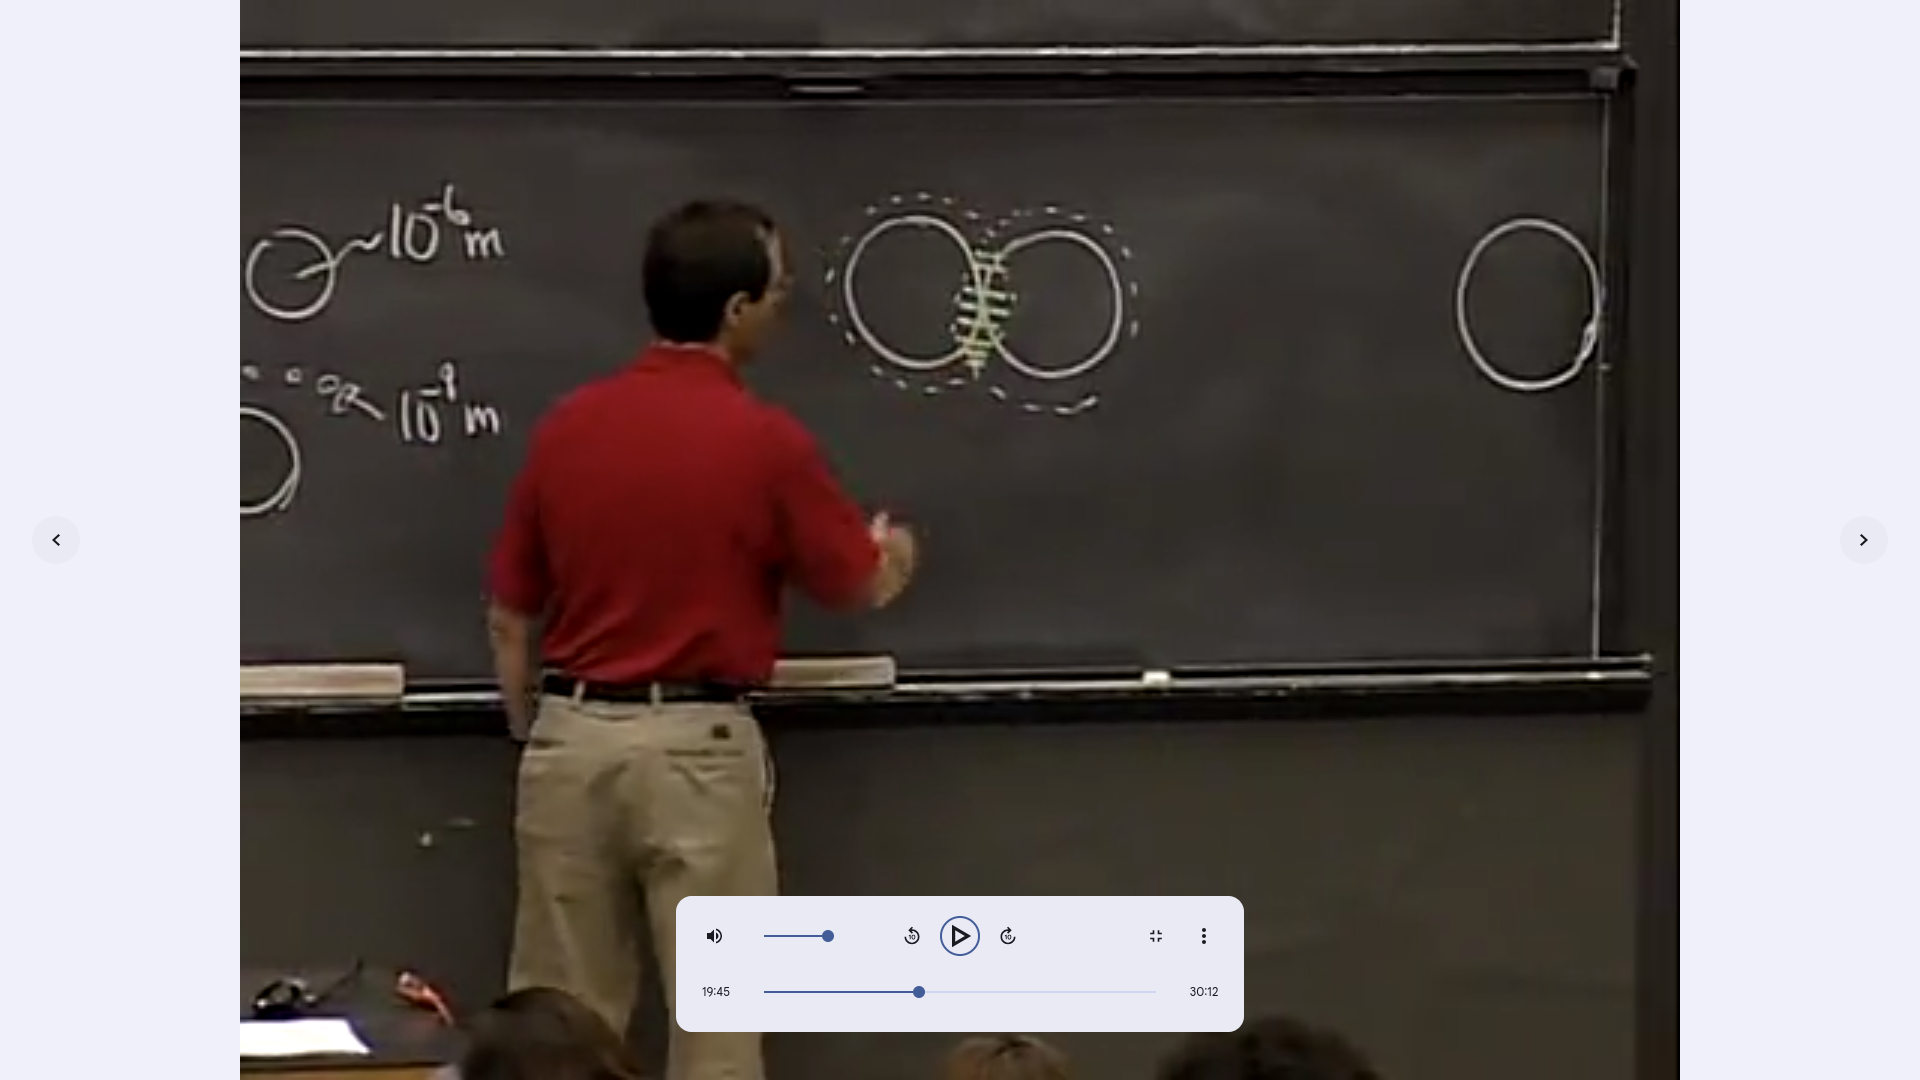 10⁻⁶ m
10⁻⁹ m
10
10
19:45
30:12